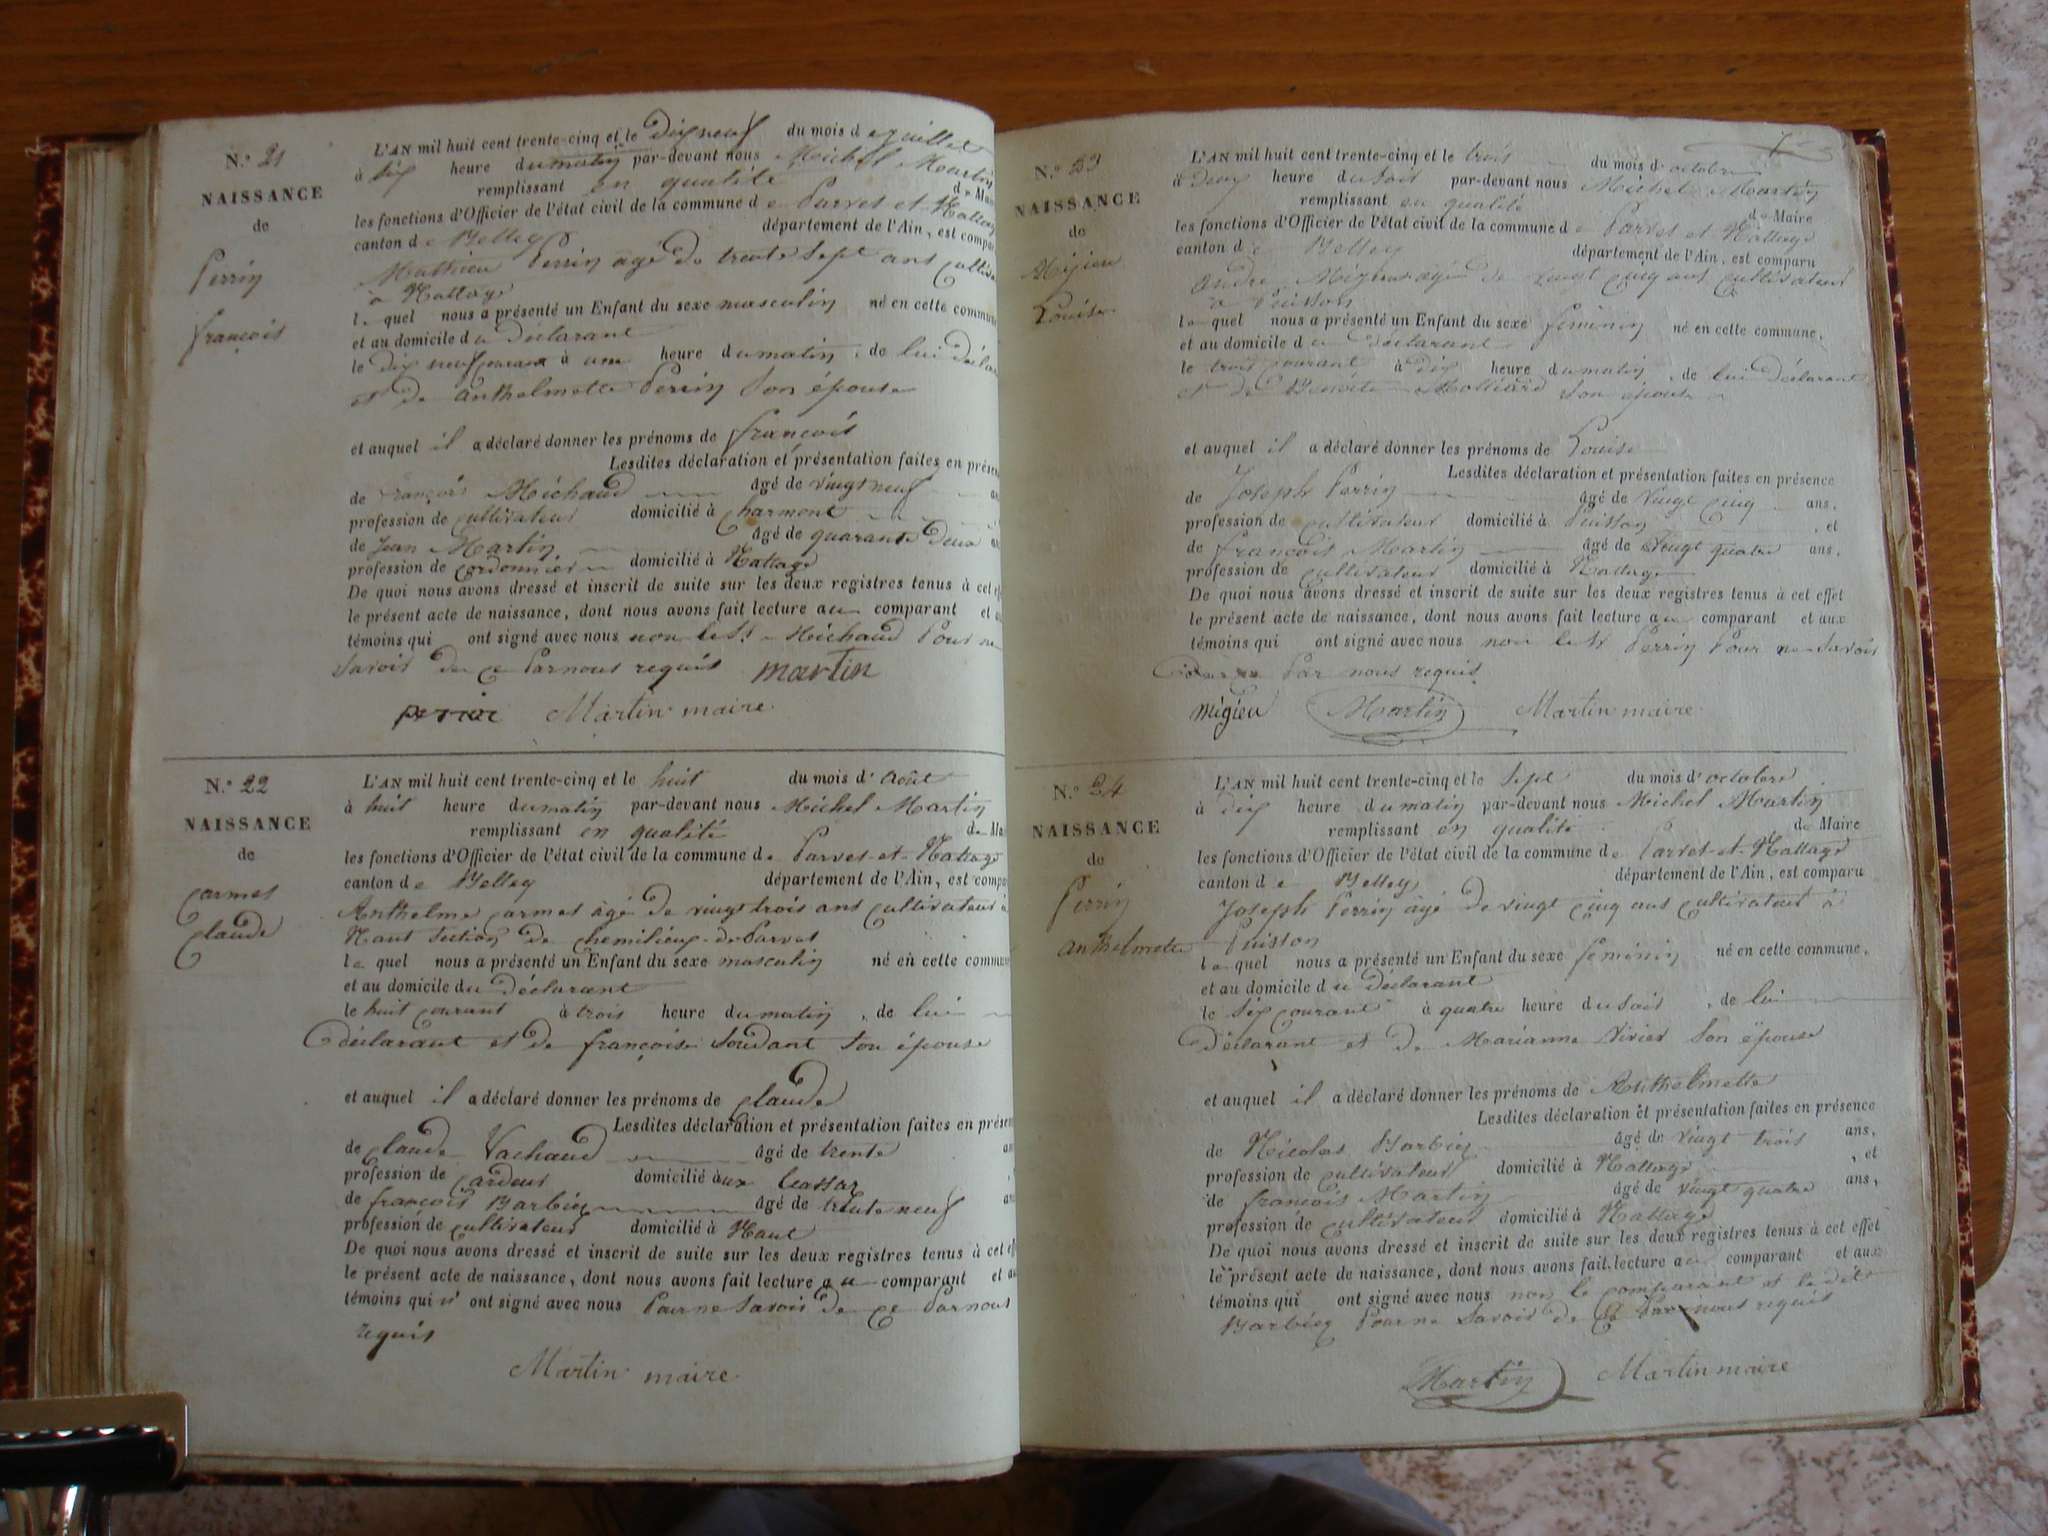 N.º 21
NAISSANCE
de
Perrin
françois
L'AN mil huit cent trente-cinq et le dix neuf du mois de juillet
à dix heure du matin par-devant nous Michel Martin
remplissant en qualité de Mai
les fonctions d'Officier de l'état civil de la commune de Parves et Nattage
canton de Belley département de l'Ain, est compar
Mathieu Perrin agé de trente sept ans cultiva
à Nattage
lequel nous a présenté un Enfant du sexe masculin né en cette commune
et au domicile du déclarant
le dix neuf courant à une heure du matin, de lui décla
et de anthelmette Perrin son épouse
et auquel il a déclaré donner les prénoms de françois
Lesdites déclaration et présentation faites en prése
de françois Michaud âgé de vingt neuf an
profession de cultivateur domicilié à charmont
de Jean Martin âgé de quarante deux an
profession de cordonnier domicilié à Nattage
De quoi nous avons dressé et inscrit de suite sur les deux registres tenus à cet eff
le présent acte de naissance, dont nous avons fait lecture au comparant et au
témoins qui ont signé avec nous non le Sr Michaud Pour ne
savoir de ce Par nous requis martin
Martin maire
N.º 22
NAISSANCE
de
carmes
claude
L'AN mil huit cent trente-cinq et le huit du mois d'Août
à huit heure du matin par-devant nous Michel Martin
remplissant en qualité de Mai
les fonctions d'Officier de l'état civil de la commune de Parves-et-Nattage
canton de Belley département de l'Ain, est compa
Anthelme carmes âgé de vingt trois ans cultivateur à
Nant section de chemilieux de Parves
lequel nous a présenté un Enfant du sexe masculin né en cette commune
et au domicile du déclarant
le huit courant à trois heure du matin, de lui
déclarant et de françoise Soudant son épouse
et auquel il a déclaré donner les prénoms de claude
Lesdites déclaration et présentation faites en présen
de claude Vachaud âgé de trente an
profession de cardeur domicilié aux
de françois Barbier âgé de trente neuf an
profession de cultivateur domicilié à Nant
De quoi nous avons dressé et inscrit de suite sur les deux registres tenus à cet eff
le présent acte de naissance, dont nous avons fait lecture au comparant et au
témoins qui n'ont signé avec nous Pour ne savoir de ce Par nous
requis
Martin maire
N.º 23
NAISSANCE
de
Migieu
Louise
L'AN mil huit cent trente-cinq et le trois du mois d'octobre
à deux heure du soir par-devant nous Michel Martin
remplissant en qualité de Maire
les fonctions d'Officier de l'état civil de la commune de Parves et Nattage
canton de Belley département de l'Ain, est comparu
andré Migieu agé de vingt cinq ans cultivateur
à Puisson
lequel nous a présenté un Enfant du sexe feminin né en cette commune,
et au domicile du déclarant
le trois courant à dix heure du matin, de lui déclarant
et de Benoite Molliard son épouse
et auquel il a déclaré donner les prénoms de Louise
Lesdites déclaration et présentation faites en présence
de Joseph Perrin âgé de vingt cinq ans,
profession de cultivateur domicilié à Puisson, et
de françois Martin âgé de vingt quatre ans,
profession de cultivateur domicilié à Nattage
De quoi nous avons dressé et inscrit de suite sur les deux registres tenus à cet effet
le présent acte de naissance, dont nous avons fait lecture au comparant et aux
témoins qui ont signé avec nous non le Sr Perrin Pour ne savoir
de ce Par nous requis
migieu Martin Martin maire
N.º 24
NAISSANCE
de
Perrin
anthelmette
L'AN mil huit cent trente-cinq et le sept du mois d'octobre
à dix heure du matin par-devant nous Michel Martin
remplissant en qualité de Maire
les fonctions d'Officier de l'état civil de la commune de Parves-et-Nattage
canton de Belley département de l'Ain, est comparu
Joseph Perrin âgé de vingt cinq ans cultivateur à
Puisson
lequel nous a présenté un Enfant du sexe feminin né en cette commune,
et au domicile du déclarant
le six courant à quatre heure du soir, de lui
déclarant et de Marianne Vivier son épouse
et auquel il a déclaré donner les prénoms de Anthelmette
Lesdites déclaration et présentation faites en présence
de Nicolas Barbier âgé de vingt trois ans,
profession de cultivateur domicilié à Nattage, et
de françois Martin âgé de vingt quatre ans,
profession de cultivateur domicilié à Nattage
De quoi nous avons dressé et inscrit de suite sur les deux registres tenus à cet effet
le présent acte de naissance, dont nous avons fait lecture au comparant et aux
témoins qui ont signé avec nous non le comparant et ledit
Barbier Pour ne savoir de ce Par nous requis
Martin Martin maire